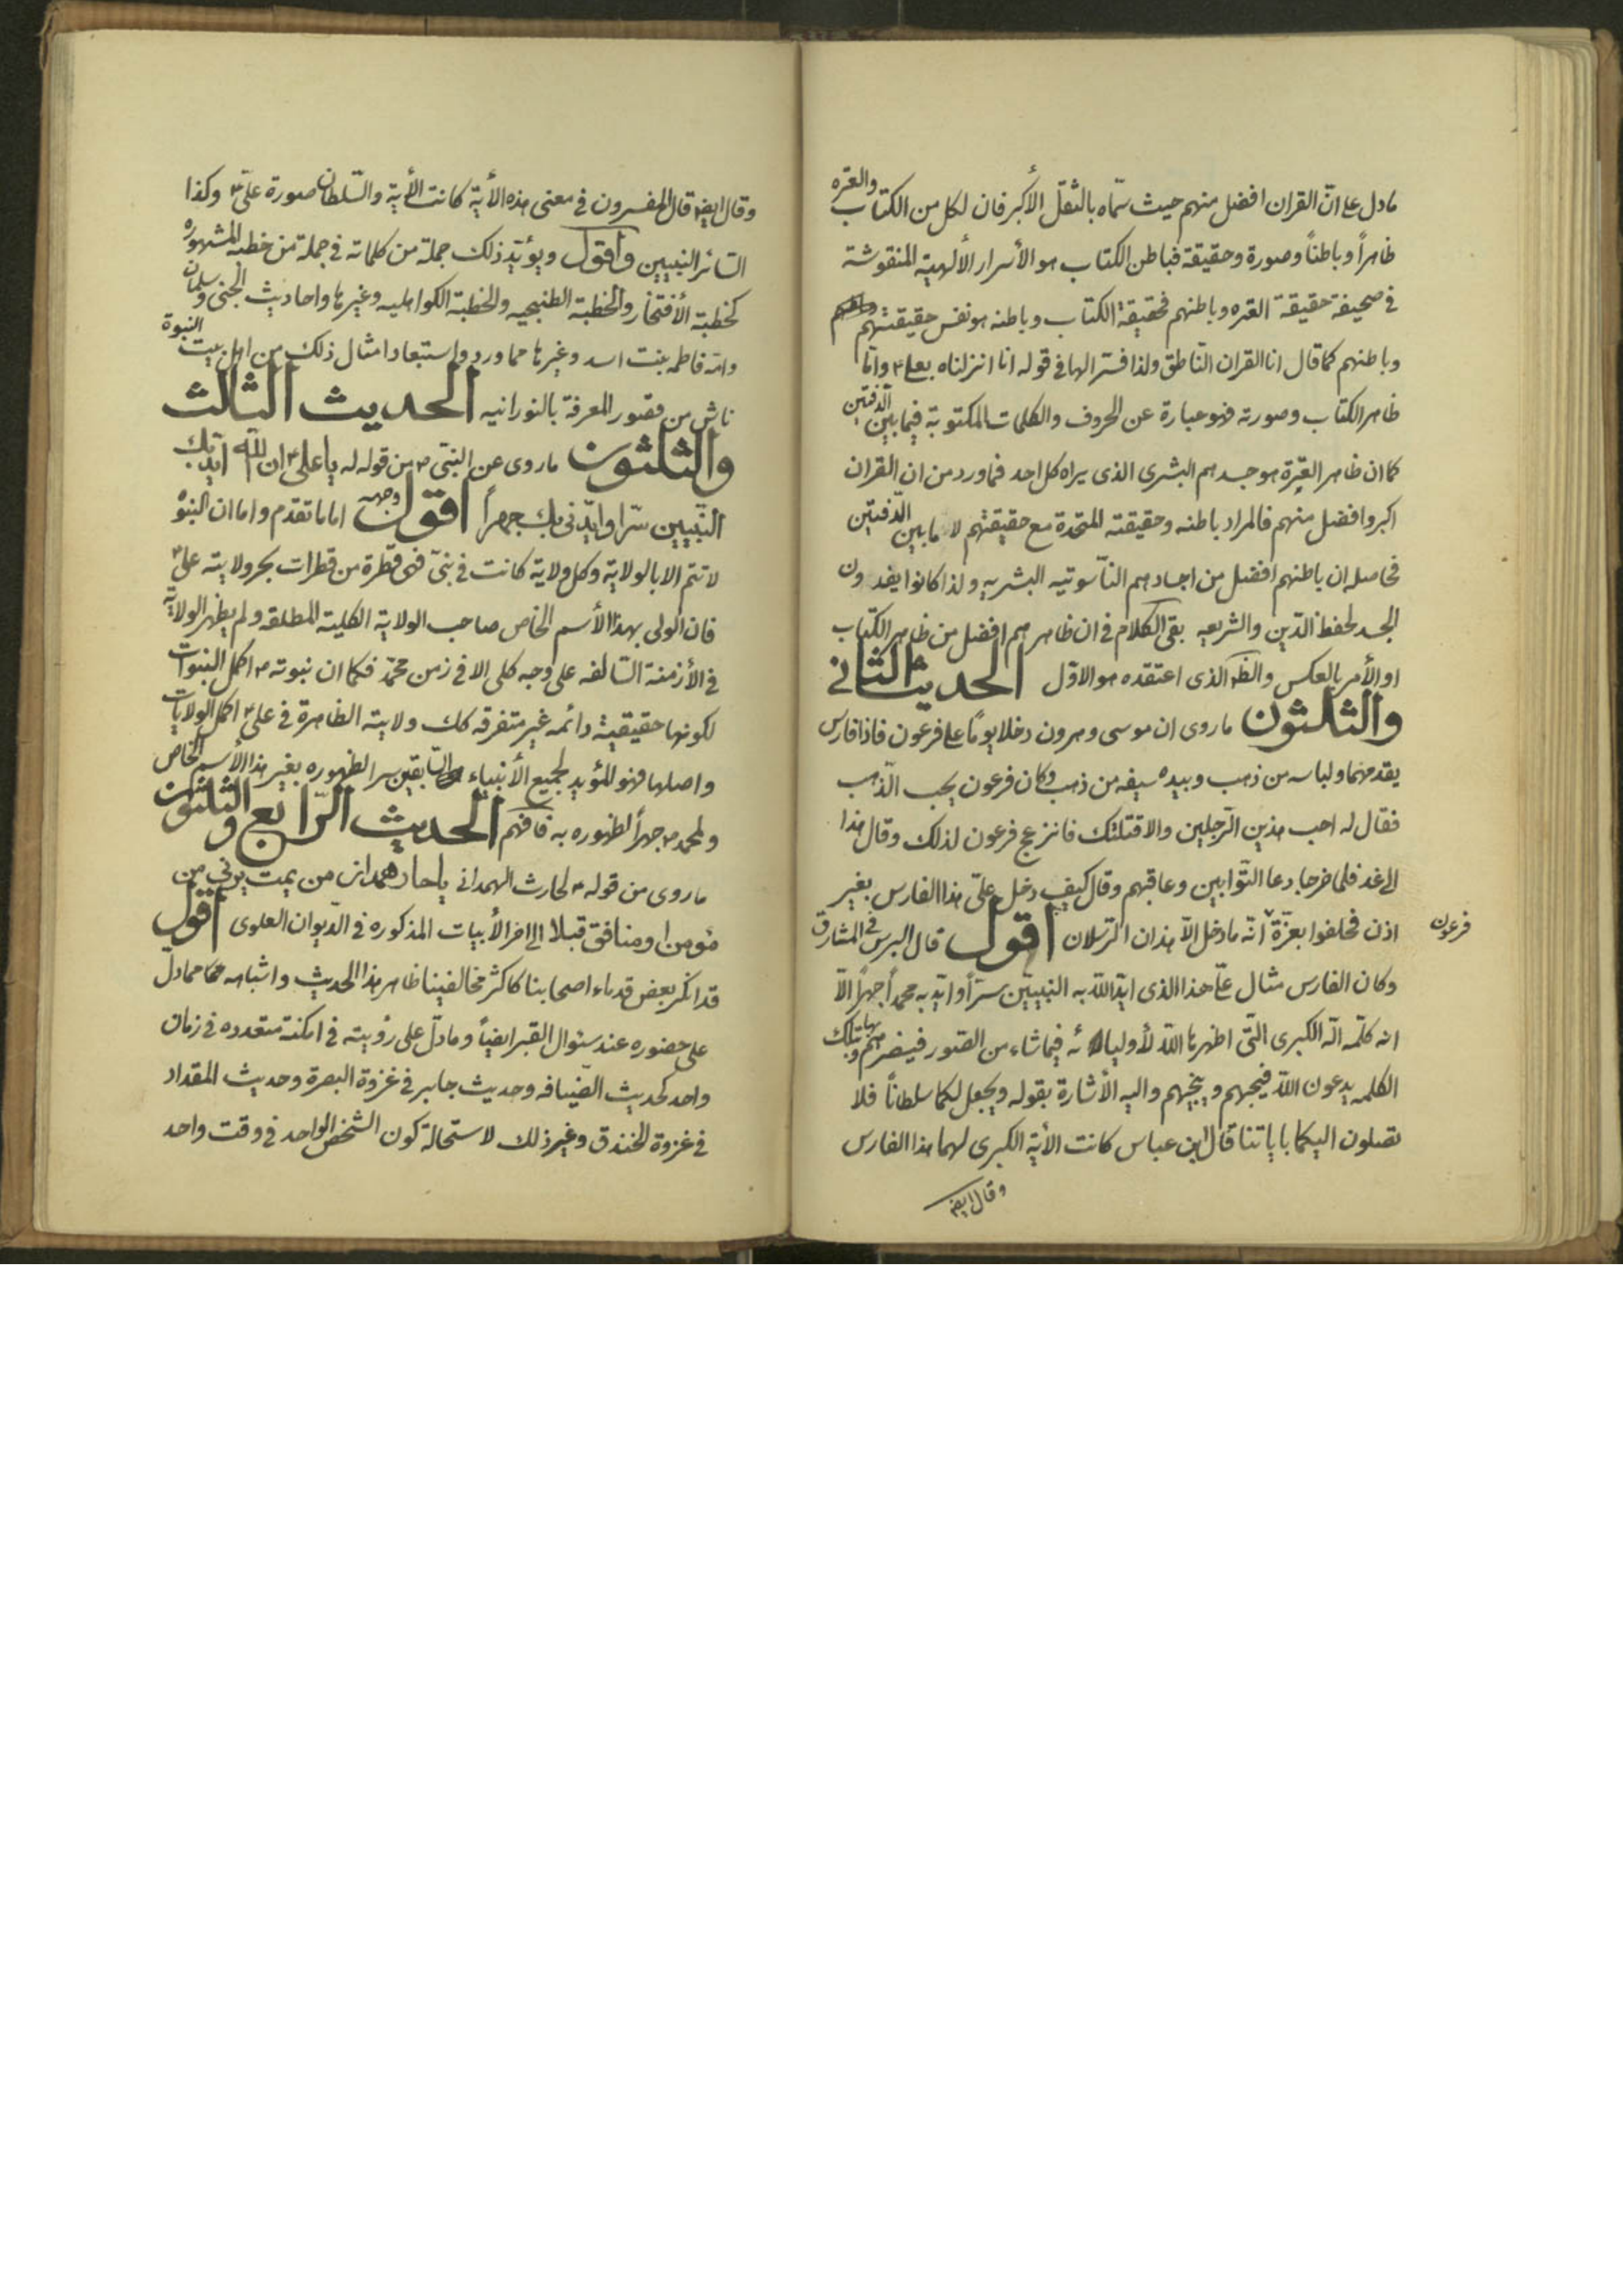 مادل على انّ القران افضل منهم حيث سمّاه بالثقل الأكبر فان لكل من الكتاب والعتره
ظاهراً وباطناً وصورة وحقيقة فباطن الكتاب هو الأسرار الألهية المنقوشة
في صحيفة حقيقة العتره وباطنهم فحقيقة الكتاب وباطنه هو نفس حقيقتهم
وباطنهم كما قال انا القران النّاطق ولذا فسّر الهاء في قوله انا انزلناه بعلي ۴ وامّا
ظاهر الكتاب وصورته فهو عبارة عن الحروف والكلمات المكتوبة فيما بين الدّفتين
كما ان ظاهر العترة هو جسدهم البشرى الذى يراه كل احد فما ورد من ان القران
اكبر وافضل منهم فالمراد باطنه وحقيقته المتحدة مع حقيقتهم لا ما بين الدّفتين
فحاصله ان باطنهم افضل من اجسادهم النّاسوتيه البشريه ولذا كانوا يفدون
الجسد لحفظ الدّين والشريعه بقى الكلام في ان ظاهرهم افضل من ظاهر الكتاب
او الأمر بالعكس والظ الذى اعتقده هو الاوّل الحديث الثاني
والثلثون ماروى ان موسى وهرون دخلا يومًا على فرعون فاذا فارس
يقدمهما ولباسه من ذهب وبيده سيفه من ذهب وكان فرعون يحب الذّهب
فقال له احب هذين الرّجلين والا قتلتك فانزعج فرعون لذلك وقال هذا
الى غد فلما خرجا دعا البوّابين وعاقبهم وقال كيف دخل علىّ هذا الفارس بغير
اذن فحلفوا بعزّة فرعون انّه ما دخل الّا هذان الرّجلان اقول قال البرسى في المشارق
وكان الفارس مثال علىّ هذا الذى ايّد اللّه به النبيّين سرّاً وايّد به محمداً جهراً الّا
انه كلمة اللّه الكبرى الّتى اظهرها اللّه لأوليائه فيما شاء من الصّور فينصرهم بها وبتلك
الكلمه يدعون اللّه فيجبهم وينجيهم واليه الأشارة بقوله ويجعل لكما سلطاناً فلا
يصلون اليكما باياتنا قال ابن عباس كانت الأية الكبرى لهما هذا الفارس
وقال ايض
وقال ايض قال المفسرون في معنى هذه الأية كانت الأية والسّلطان صورة علىّ ۴ وكذا
السائر النبيين واقول ويؤيّد ذلك جملة من كلماته في جملة من خطبه المشهوره
كخطبة الأفتخار والخطبة الطتنجيه والخطبة الكواهليه وغيرها واحاديث الجنى وسلمان
وامّه فاطمه بنت اسد وغيرها مما ورد واستبعاد امثال ذلك من اهل بيت النبوة
ناش من قصور المعرفة بالنورانيه الحديث الثالث
والثلثون ماروى عن النبىّ ص من قوله له يا على ۴ ان اللّه ايّد بك
النّبيين سرّا وايّدنى بك جهراً اقول وجهه اما ما تقدّم واما ان النبوّة
لا تتم الا بالولاية وكل ولاية كانت في نبىّ فهى قطرة من قطرات بحر ولايته على ۴
فان الولى بهذا الأسم الخاص صاحب الولاية الكلية المطلقه ولم يظهر الولاية
في الأزمنة السّالفه على وجه كلى الا في زمن محمّد فكما ان نبوته ص اكمل النبوات
لكونها حقيقية دائمه غير متفرقه كك ولايته الظاهرة في على ۴ اكمل الولايات
واصلها فهو المؤيد لجميع الأنبياء السّابقين سرا لظهوره بغير هذا الأسم الخاص
ولمحمد ص جهراً لظهوره به فافهم الحديث الرّابع والثلثون
ماروى من قوله ۴ لحارث الهمدانى يا حار همدان من يمت يرنى من
مؤمن او منافق قبلا الى اخر الأبيات المذكوره في الديوان العلوى اقول
قد انكر بعض قدماء اصحابنا كاكثر مخالفينا ظاهر هذا الحديث واشباهه مما دلّ
على حضوره عند سئوال القبر ايضاً وما دلّ على رؤيته في امكنة متعدده في زمان
واحد كحديث الضّيافه وحديث جابر في غزوة البصرة وحديث المقداد
في غزوة الخندق وغير ذلك لاستحالة كون الشّخص الواحد في وقت واحد